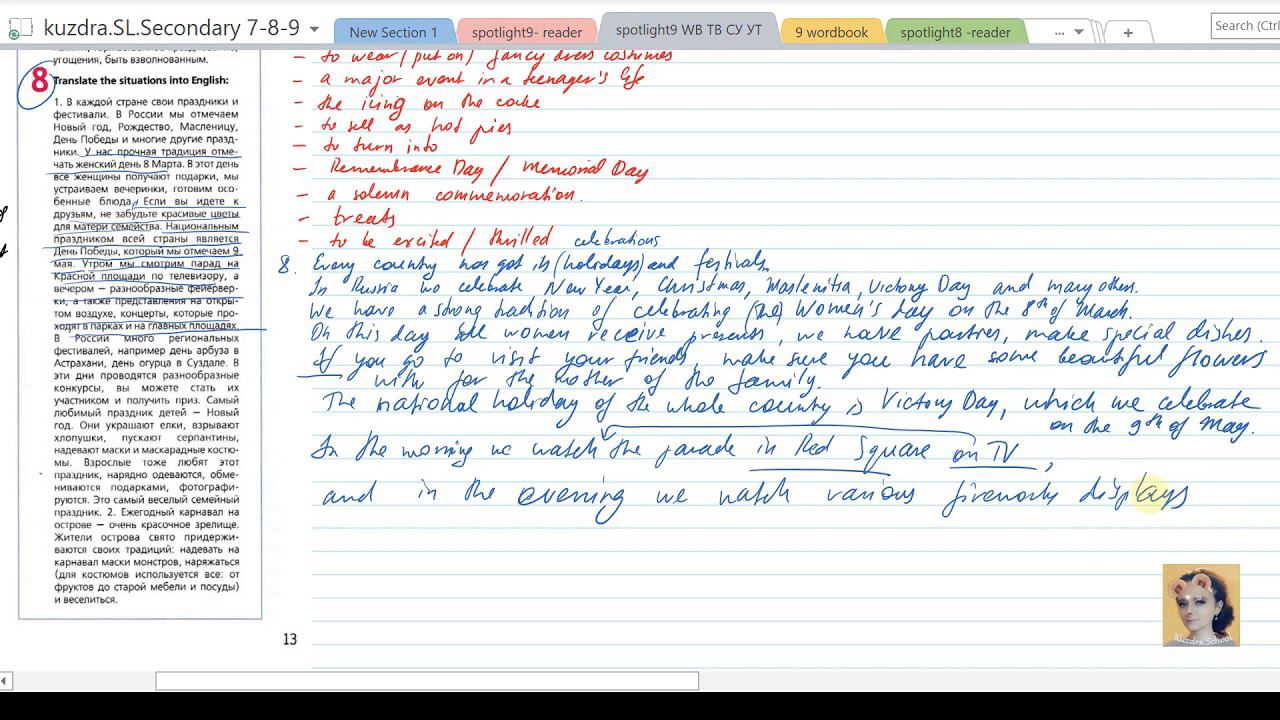 kuzdra.SL.Secondary 7-8-9
New Section 1
spotlight9- reader
spotlight9 WB ТВ СУ УТ
9 wordbook
spotlight8 -reader
...
+
Search (Ctrl
угощения, быть взволнованным.
8 Translate the situations into English:
1. В каждой стране свои праздники и
фестивали. В России мы отмечаем
Новый год, Рождество, Масленицу,
День Победы и многие другие празд-
ники. У нас прочная традиция отме-
чать женский день 8 Марта. В этот день
все женщины получают подарки, мы
устраиваем вечеринки, готовим осо-
бенные блюда. Если вы идете к
друзьям, не забудьте красивые цветы
для матери семейства. Национальным
праздником всей страны является
День Победы, который мы отмечаем 9
мая. Утром мы смотрим парад на
Красной площади по телевизору, а
вечером – разнообразные фейервер-
ки, а также представления на откры-
том воздухе, концерты, которые про-
ходят в парках и на главных площадях.
В России много региональных
фестивалей, например день арбуза в
Астрахани, день огурца в Суздале. В
эти дни проводятся разнообразные
конкурсы, вы можете стать их
участником и получить приз. Самый
любимый праздник детей – Новый
год. Они украшают елки, взрывают
хлопушки, пускают серпантины,
надевают маски и маскарадные костю-
мы. Взрослые тоже любят этот
праздник, нарядно одеваются, обме-
ниваются подарками, фотографи-
руются. Это самый веселый семейный
праздник. 2. Ежегодный карнавал на
острове – очень красочное зрелище.
Жители острова свято придержи-
ваются своих традиций: надевать на
карнавал маски монстров, наряжаться
(для костюмов используется все: от
фруктов до старой мебели и посуды)
и веселиться.
13
– to wear (put on) fancy dress costumes
– a major event in a teenager's life
– the icing on the cake
– to sell as hot pies
– to turn into
– Remembrance Day / Memorial Day
– a solemn commemoration.
– treats
– to be excited / thrilled
celebrations
8. Every country has got its (holidays) and festivals.
In Russia we celebrate New Year, Christmas, Maslenitsa, Victory Day and many others.
We have a strong tradition of celebrating (the) Women's day on the 8th of March.
On this day all women receive presents, we have parties, make special dishes.
If you go to visit your friends, make sure you have some beautiful flowers
with for the mother of the family.
The national holiday of the whole country is Victory Day, which we celebrate
on the 9th of May.
In the morning we watch the parade in Red Square on TV,
and in the evening we watch various firework displays
Kuzdra.School